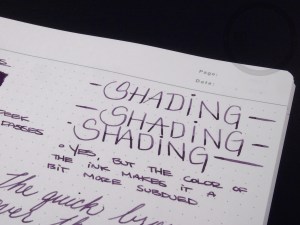 Page:
Date:
SHADING
SHADING
SHADING
YES, BUT THE COLOR OF
THE INK MAKES IT A
BIT MORE SUBDUED
the quick brown
over the